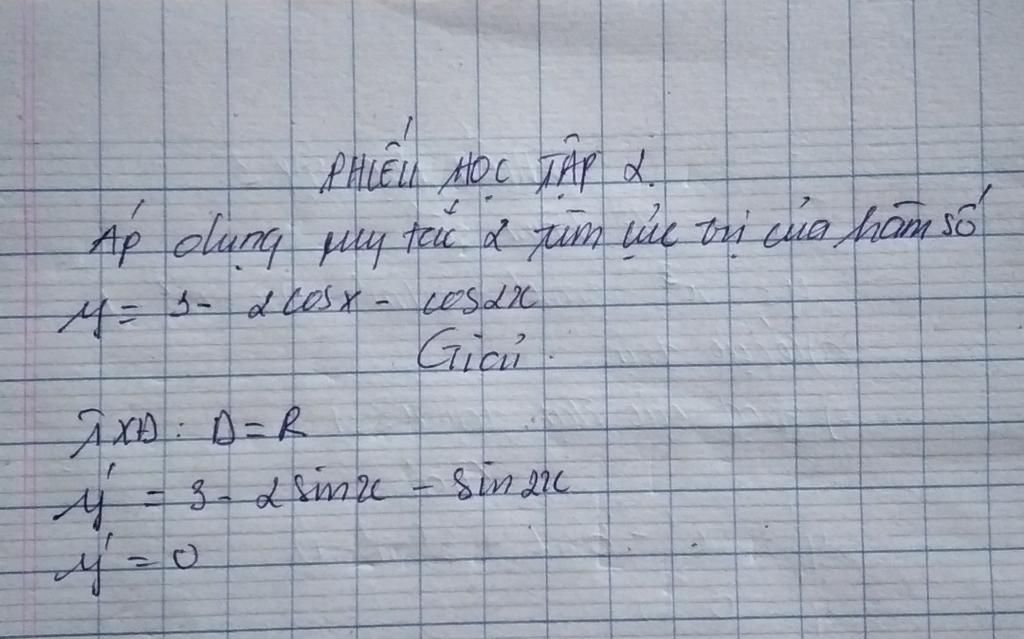 PHIẾU HỌC TẬP 2.
Áp dụng quy tắc 2 tìm cực trị của hàm số
y = 3 - 2cosx - cos2x
Giải.
TXĐ: D = R
y' = 3 - 2sinx - sin2x
y' = 0